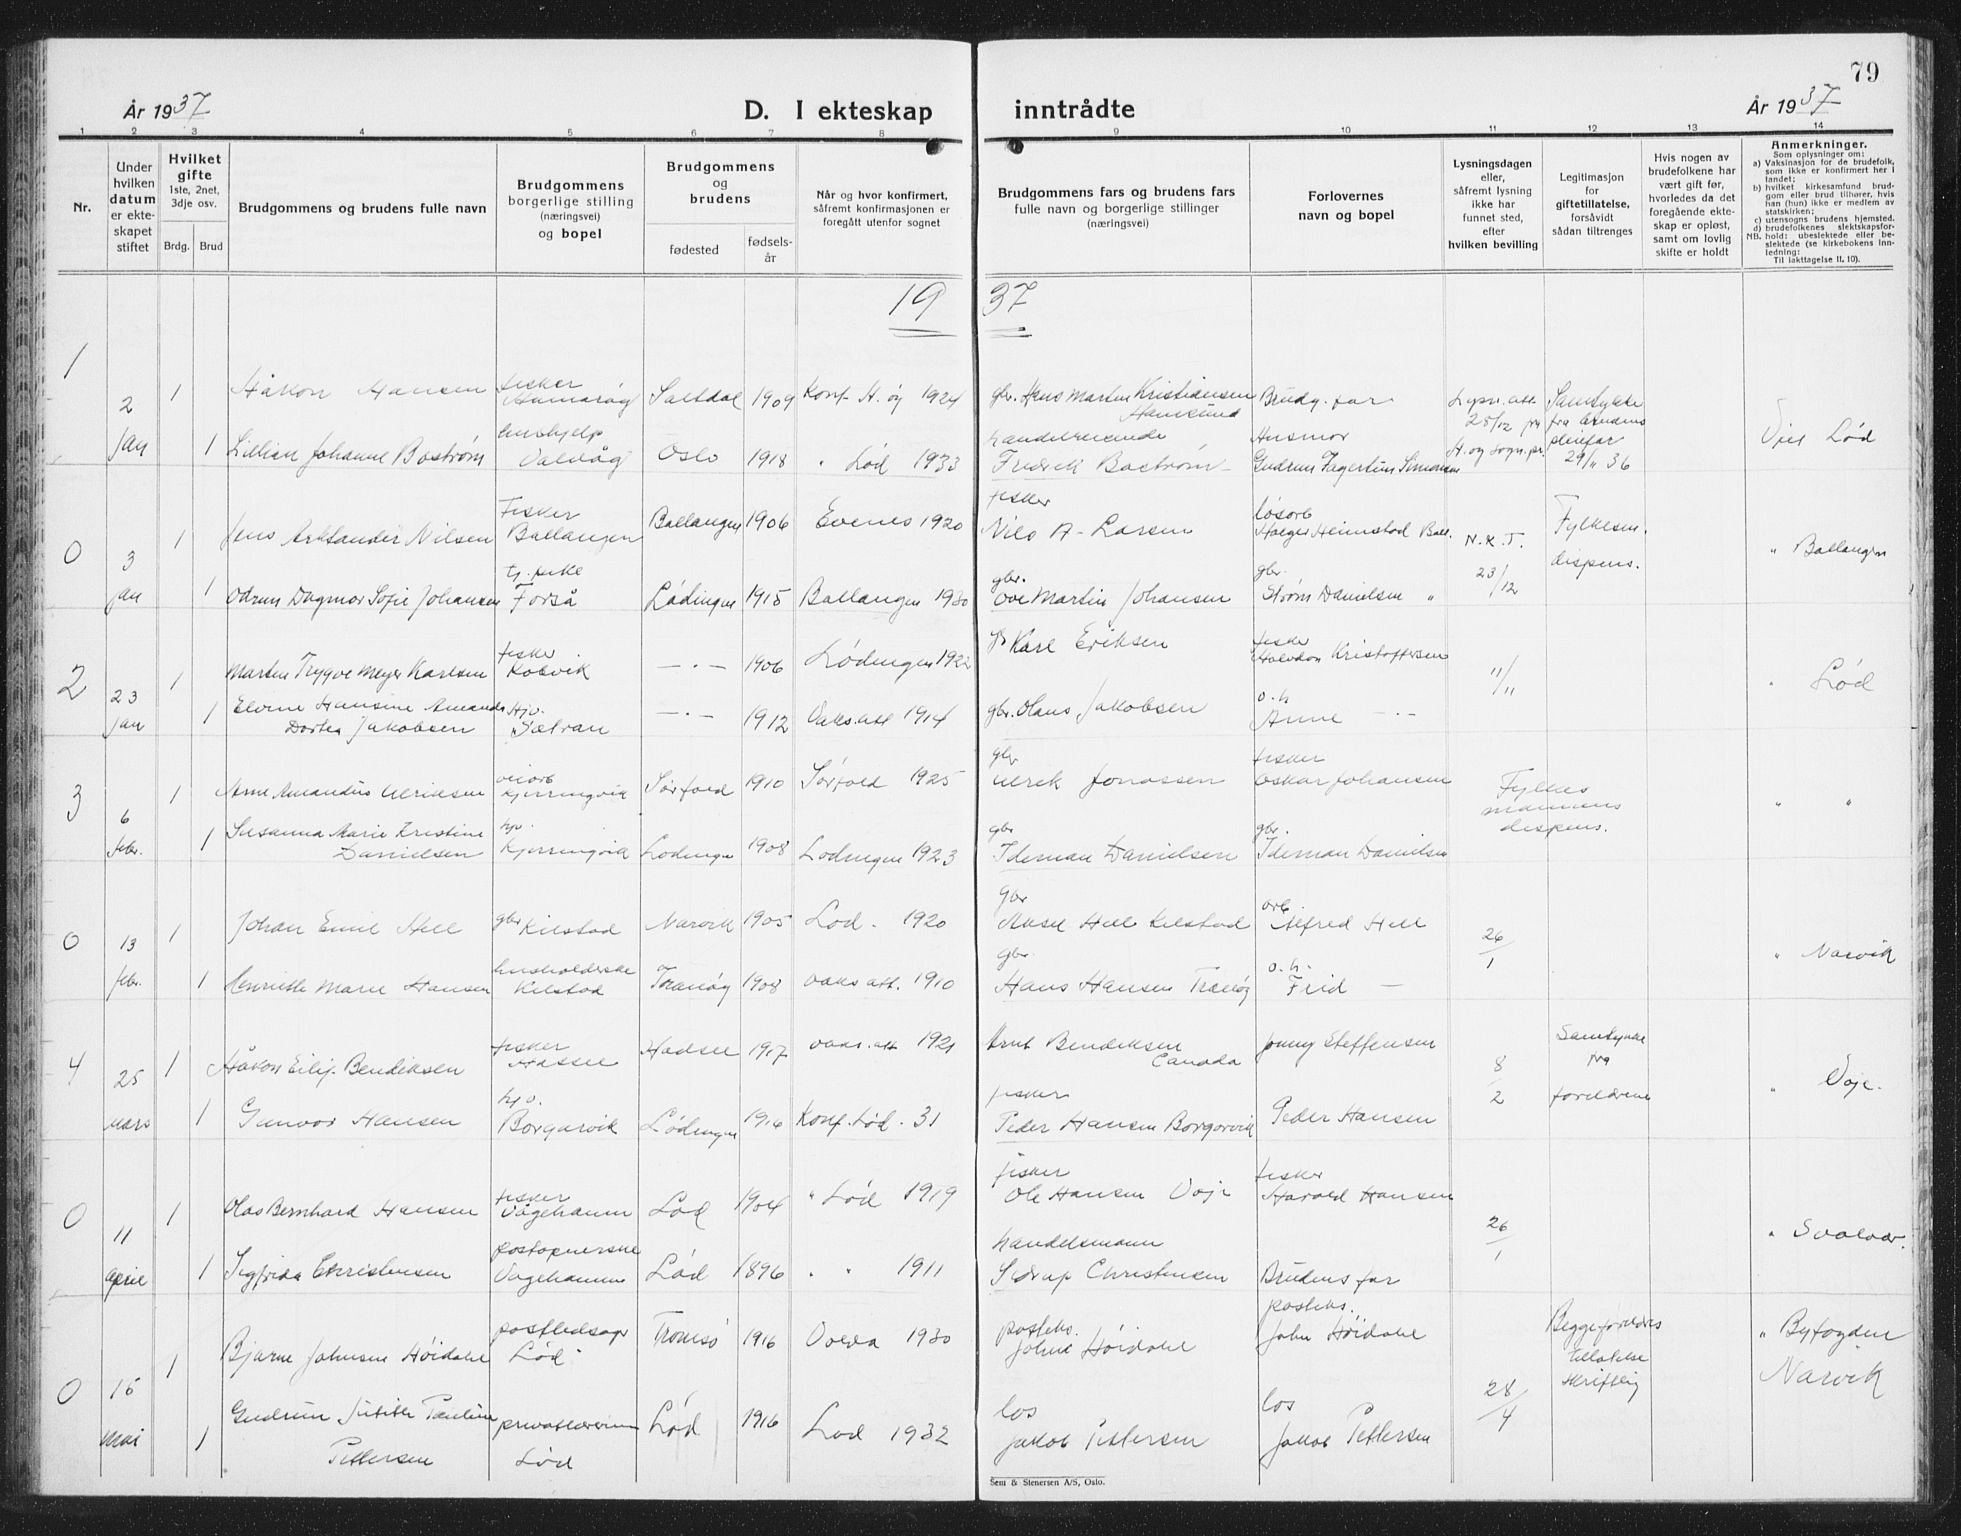 79
År 1937
D. I ekteskap inntrådte
År 1937
1 2 3 4 5 6 7 8 9 10 11 12 13 14
Nr.
Under hvilken datum er ekteskapet stiftet
Hvilket gifte
1ste, 2net, 3dje osv.
Brdg. Brud
Brudgommens og brudens fulle navn
Brudgommens borgerlige stilling (næringsvei) og bopel
Brudgommens og brudens
fødested
fødsels-år
Når og hvor konfirmert, såfremt konfirmasjonen er foregått utenfor sognet
Brudgommens fars og brudens fars fulle navn og borgerlige stillinger (næringsvei)
Forlovernes navn og bopel
Lysningsdagen eller, såfremt lysning ikke har funnet sted, efter hvilken bevilling
Legitimasjon for giftetillatelse, forsåvidt sådan tiltrenges
Hvis nogen av brudefolkene har vært gift før, hvorledes da det foregående ekteskap er opløst, samt om lovlig skifte er holdt
Anmerkninger.
Som oplysninger om:
a) Vaksinasjon for de brudefolk, som ikke er konfirmert her i landet;
b) hvilket kirkesamfund brudgom eller brud tilhører, hvis han (hun) ikke er medlem av statskirken;
c) utensogns brudens hjemsted.
d) brudefolkenes slektskapsforhold: ubeslektede eller beslektede (se kirkebokens Innledning:
NB.
Til iakttagelse II. 10).
1937
1
2 jan
1 Håkon Hansen fisker Hamarøy Saltdal 1909 Konf. H.øy 1924 gbr. Hans Martin Kristiansen Brudg. far
1 Lillian Johanne Bostrøm hushjelp Valvåg Oslo 1918 " Lød 1933 handelsreisende Fredrik Bostrøm Husmor Gudrun Fagertun Simonsen
Lysn. att. 28/12 fra H.øy sogn.pr.
Samtykke fra brudens pleiefar 29/11 36
Vjet Lød
0
3 jan
1 Jens Nilsen Fisker Ballangen Ballangen 1906 Evenes 1920 fisker Nils A. Larsen løsarb Holger Heimstad Ball.
1 Odrun Dagmar Sofie Johansen tj. pike Forså Lødingen 1915 Ballangen 1930 gbr. Ove Martin Johansen gbr. Strøm Danielsen "
N.K.T. 23/12
Fylkesm. dispens.
" Ballangen
2
23 jan
1 Martin Trygve Meyer Karlsen fisker Kobvik — " — 1906 Lødingen 1922 Karl Eriksen fisker Halvdan Kristoffersen
1 Elvine Hansine Amanda Dortea Jakobsen Hjv. Sætran — " — 1912 Vaks.att 1914 gbr. Olaus Jakobsen o.h Anne — " —
11/11
" Lød
3
6 febr.
1 Arne Amandus Ulriksen veiarb Kjerringvik Sørfold 1910 Sørfold 1925 gbr Ulrik Jonassen fisker Oskar Johansen
1 Susanna Marie Kristine Danielsen hjv. Kjerringvik Lødingen 1908 Lødingen 1923 gbr Ideman Danielsen gbr. Ideman Danielsen
Fylkesmannens dispens.
" "
0
13 febr.
1 Johan Emil Hell gbr Kilstad Narvik 1905 Lød. 1920 gbr Aksel Hell Kilstad arb. Alfred Hell
1 Henriette Marie Hansen husholderske Kilstad Tranøy 1908 vaks att. 1910 gbr. Hans Hansen Tranøy o.h. Frid —
26/1
" Narvik
4
25 mars
1 Håkon Eilif Bendiksen fisker Hassel Hadsel 1917 vaks. att 1921 Arnt Bendiksen Canada Jonny Steffensen
1 Gunvor Hansen hjv. Borgarvik Lødingen 1916 Konf. Lød. 31 fisker Peder Hansen Borgarvik Peder Hansen
8/2
Samtykke fra foreldrene
" Voje.
0
11 april
1 Olas Bernhard Hansen fisker Vågehamn Lød 1904 " Lød 1919 fisker Ole Hansen Voje fisker Harald Hansen
1 Sigfrida Christensen postopnerske Vågehamn Lød 1896 " " 1911 handelsmann Sedrup Christensen Brudens far
26/1
" Svolvær.
0
15 mai
1 Bjarne Johnsen Høidahl postledsager Lød. Tromsø 1916 Volda 1930 posteks. Johne Høidahl posteks. John Høidahl
1 Gudrun Judith Pauline Pettersen privatlærerinne Lød Lød 1916 Lød 1932 los Jakob Pettersen los Jakob Pettersen
28/4
Begge foreldres tillatelse skriftlig
" Byfogden Narvik
Sem & Stenersen A/S, Oslo.